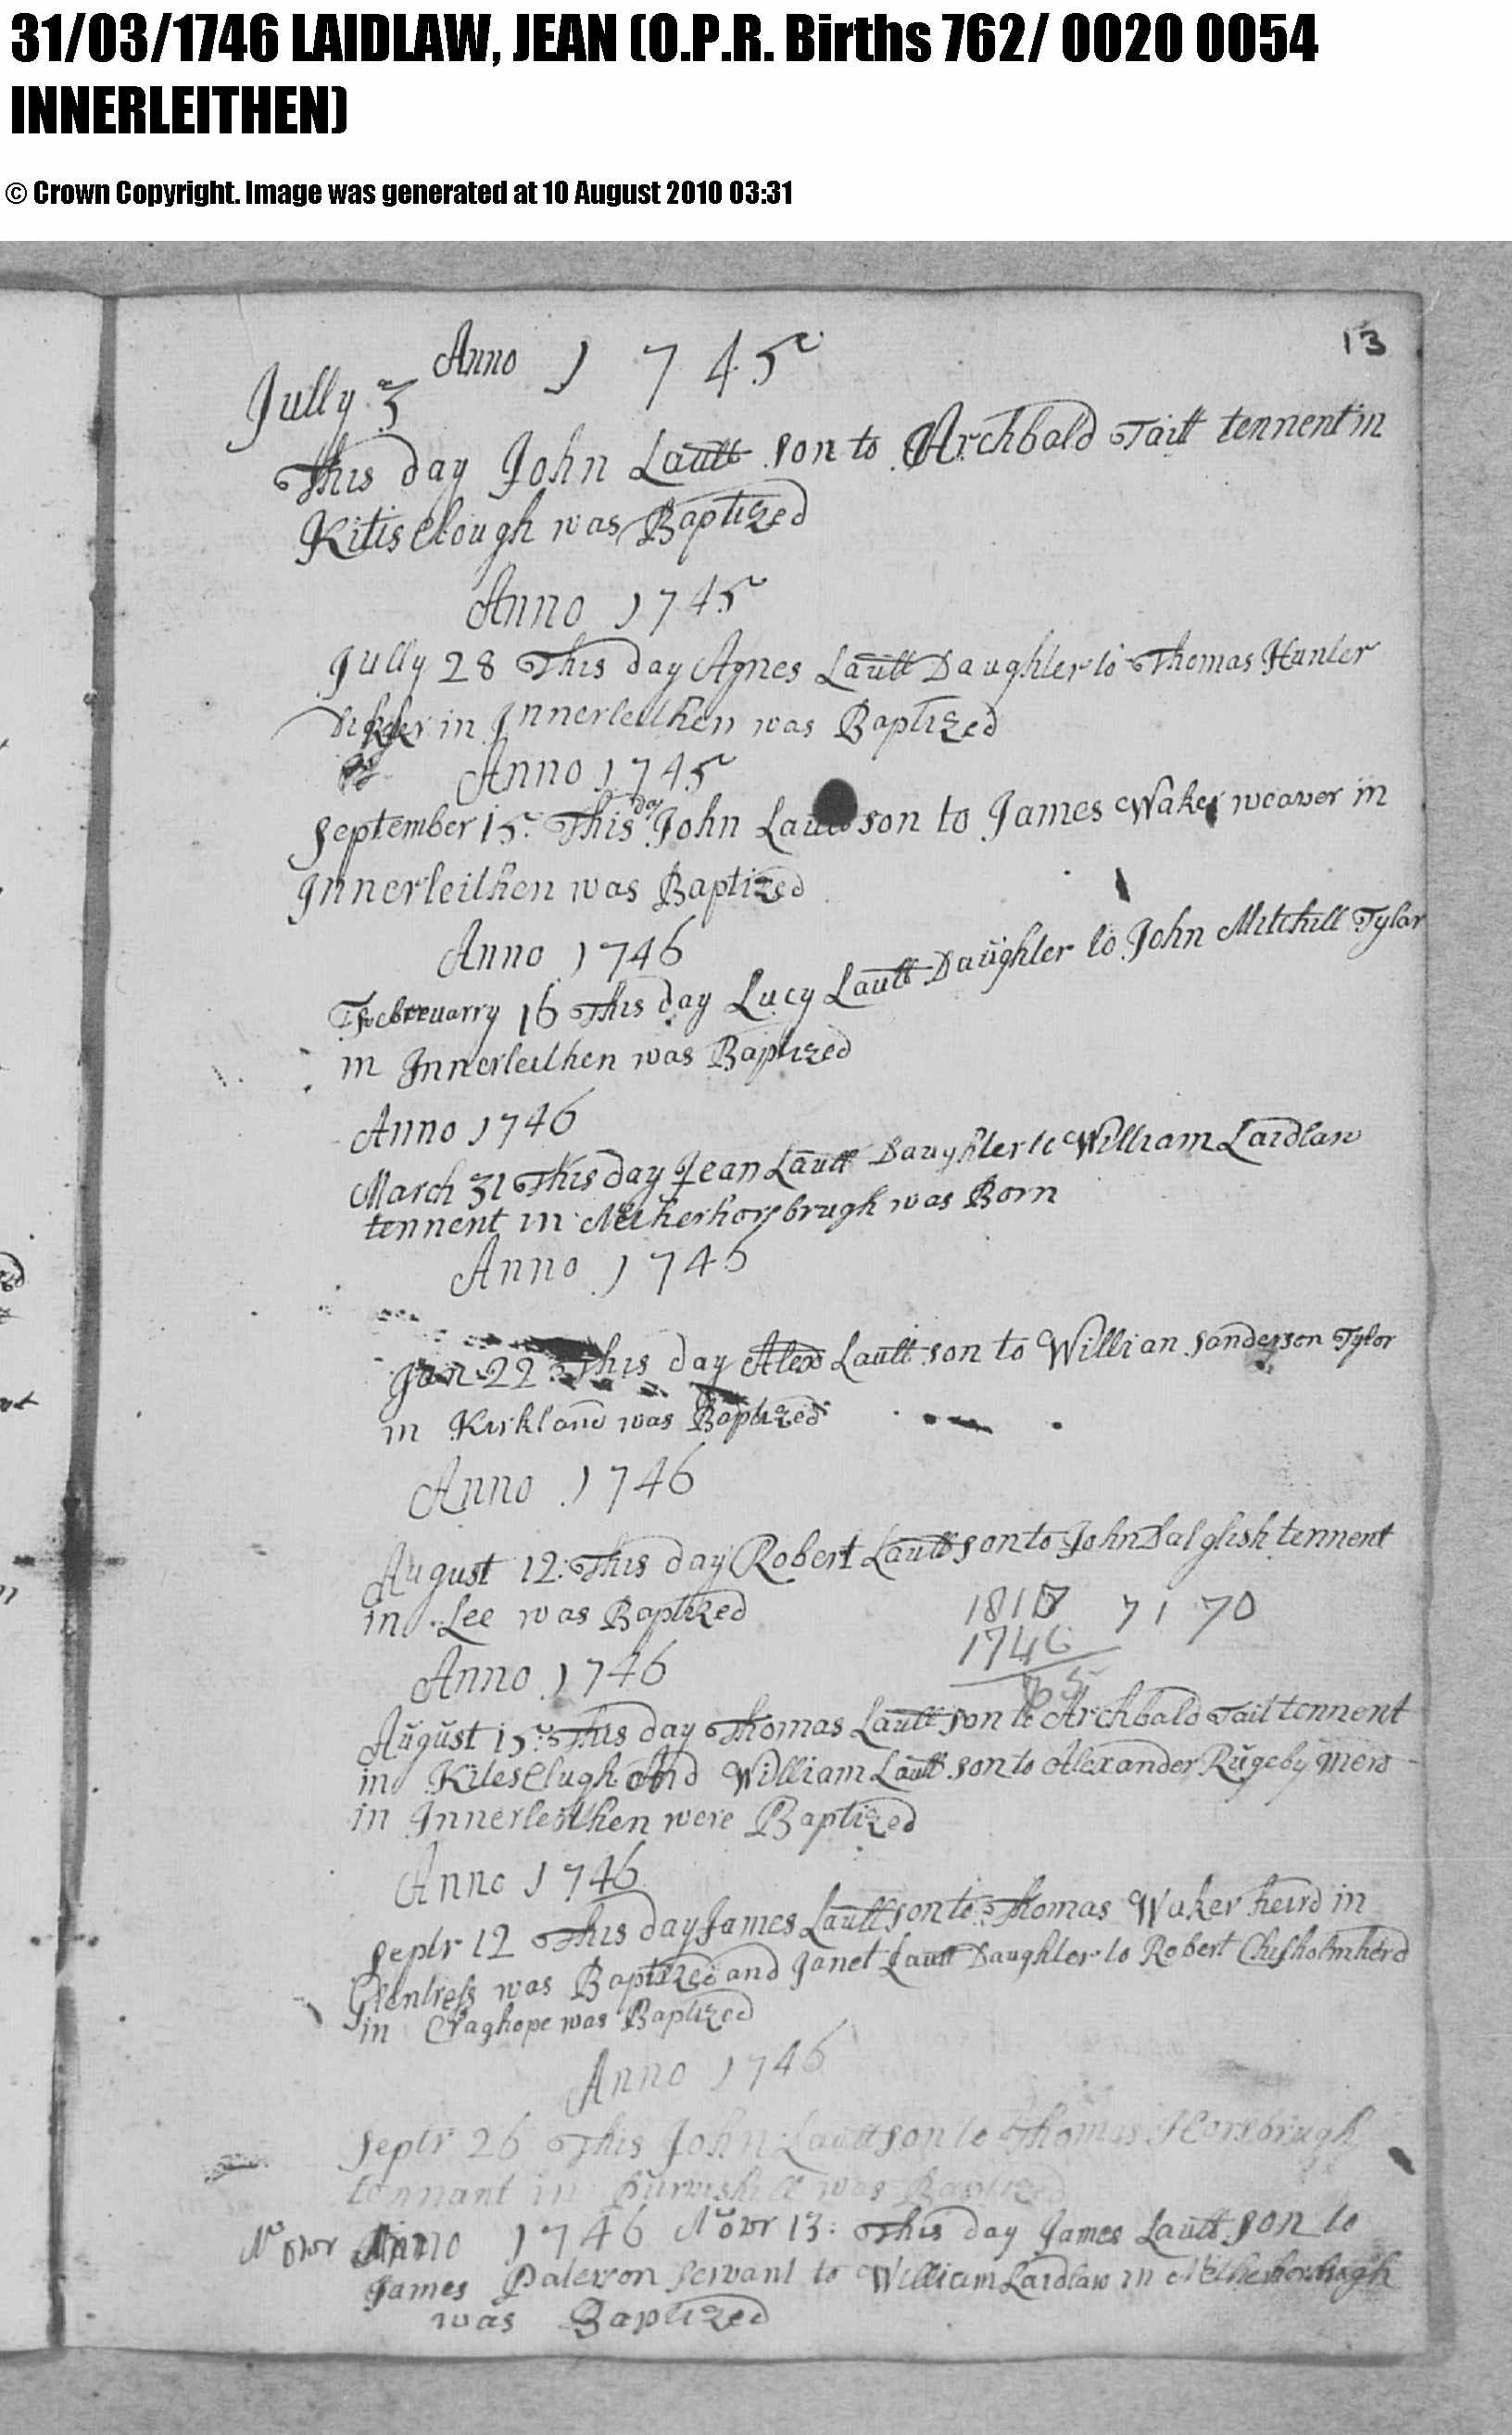 31/03/1746 LAIDLAW, JEAN (O.P.R. Births 762/ 0020 0054
INNERLEITHEN)
© Crown Copyright. Image was generated at 10 August 2010 03:31
13
Anno 1745
Jully 3
This day John Laull son to Archbald Tait tennent in
Kitis Clough was Baptized
Anno 1745
Jully 28 This day Agnes Laull Daughter to Thomas Hunter
in Innerleithen was Baptized
Anno 1745
September 15: This day John son to James Waker weaver in
Innerleithen was Baptized
Anno 1746
Februarry 16 This day Lucy Laull Daughter to John Mitchill Tylor
in Innerleithen was Baptized
Anno 1746
March 31 This day Jean Laull Daughter to William Laidlaw
tennent in Netherhorsbrugh was Born
Anno 1746
Jun 22 This day Alexr Laull son to Willian Sanderson Tylor
in Kirkland was Baptized
Anno 1746
August 12: This day Robert Laull son to John Dalglish tennent
in Lee was Baptized
181 71 70
1746
Anno 1746
August 15: This day Thomas Laull son to Archbald Tait tennent
in Kites Clugh And William Laull son to Alexander
in Innerleithen were Baptized
Anno 1746
Septr 12 This day James Laull son to Thomas Waker heird in
Glentress was Baptized and Janet Laull Daughter to Robert Chisholm herd
in Craghope was Baptized
Anno 1746
Septr 26 This John Laull son to Thomas Horsbrugh
tennant in Purvishill was Baptized
Novr Anno 1746 Novr 13: This day James Laull son to
James Paterson Servant to William Laidlaw in Netherhorsbrugh
was Baptized